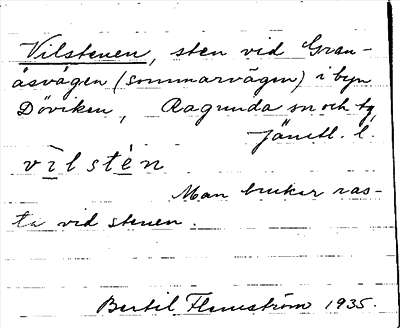 Vilstenen, sten vid Gran-
åsvägen (sommarvägen) i byn
Döviken, Ragunda sn och tg,
Jämtl. l.
vìlstèn
Man brukar ras-
ta vid stenen.
Bertil Flemström 1935.